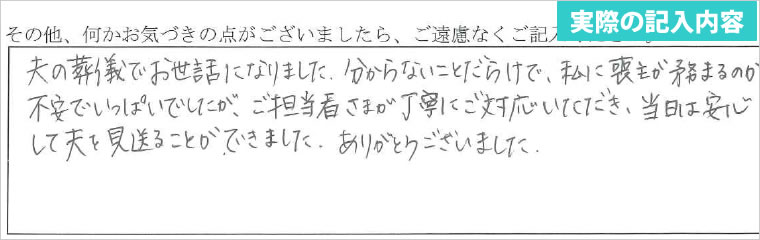 実際の記入内容
その他、何かお気づきの点がございましたら、ご遠慮なくご記入
夫の葬儀でお世話になりました。分からないことだらけで、私に喪主が務まるのか
不安でいっぱいでしたが、ご担当者さまが丁寧にご対応いただき、当日は安心
して夫を見送ることができました。ありがとうございました。